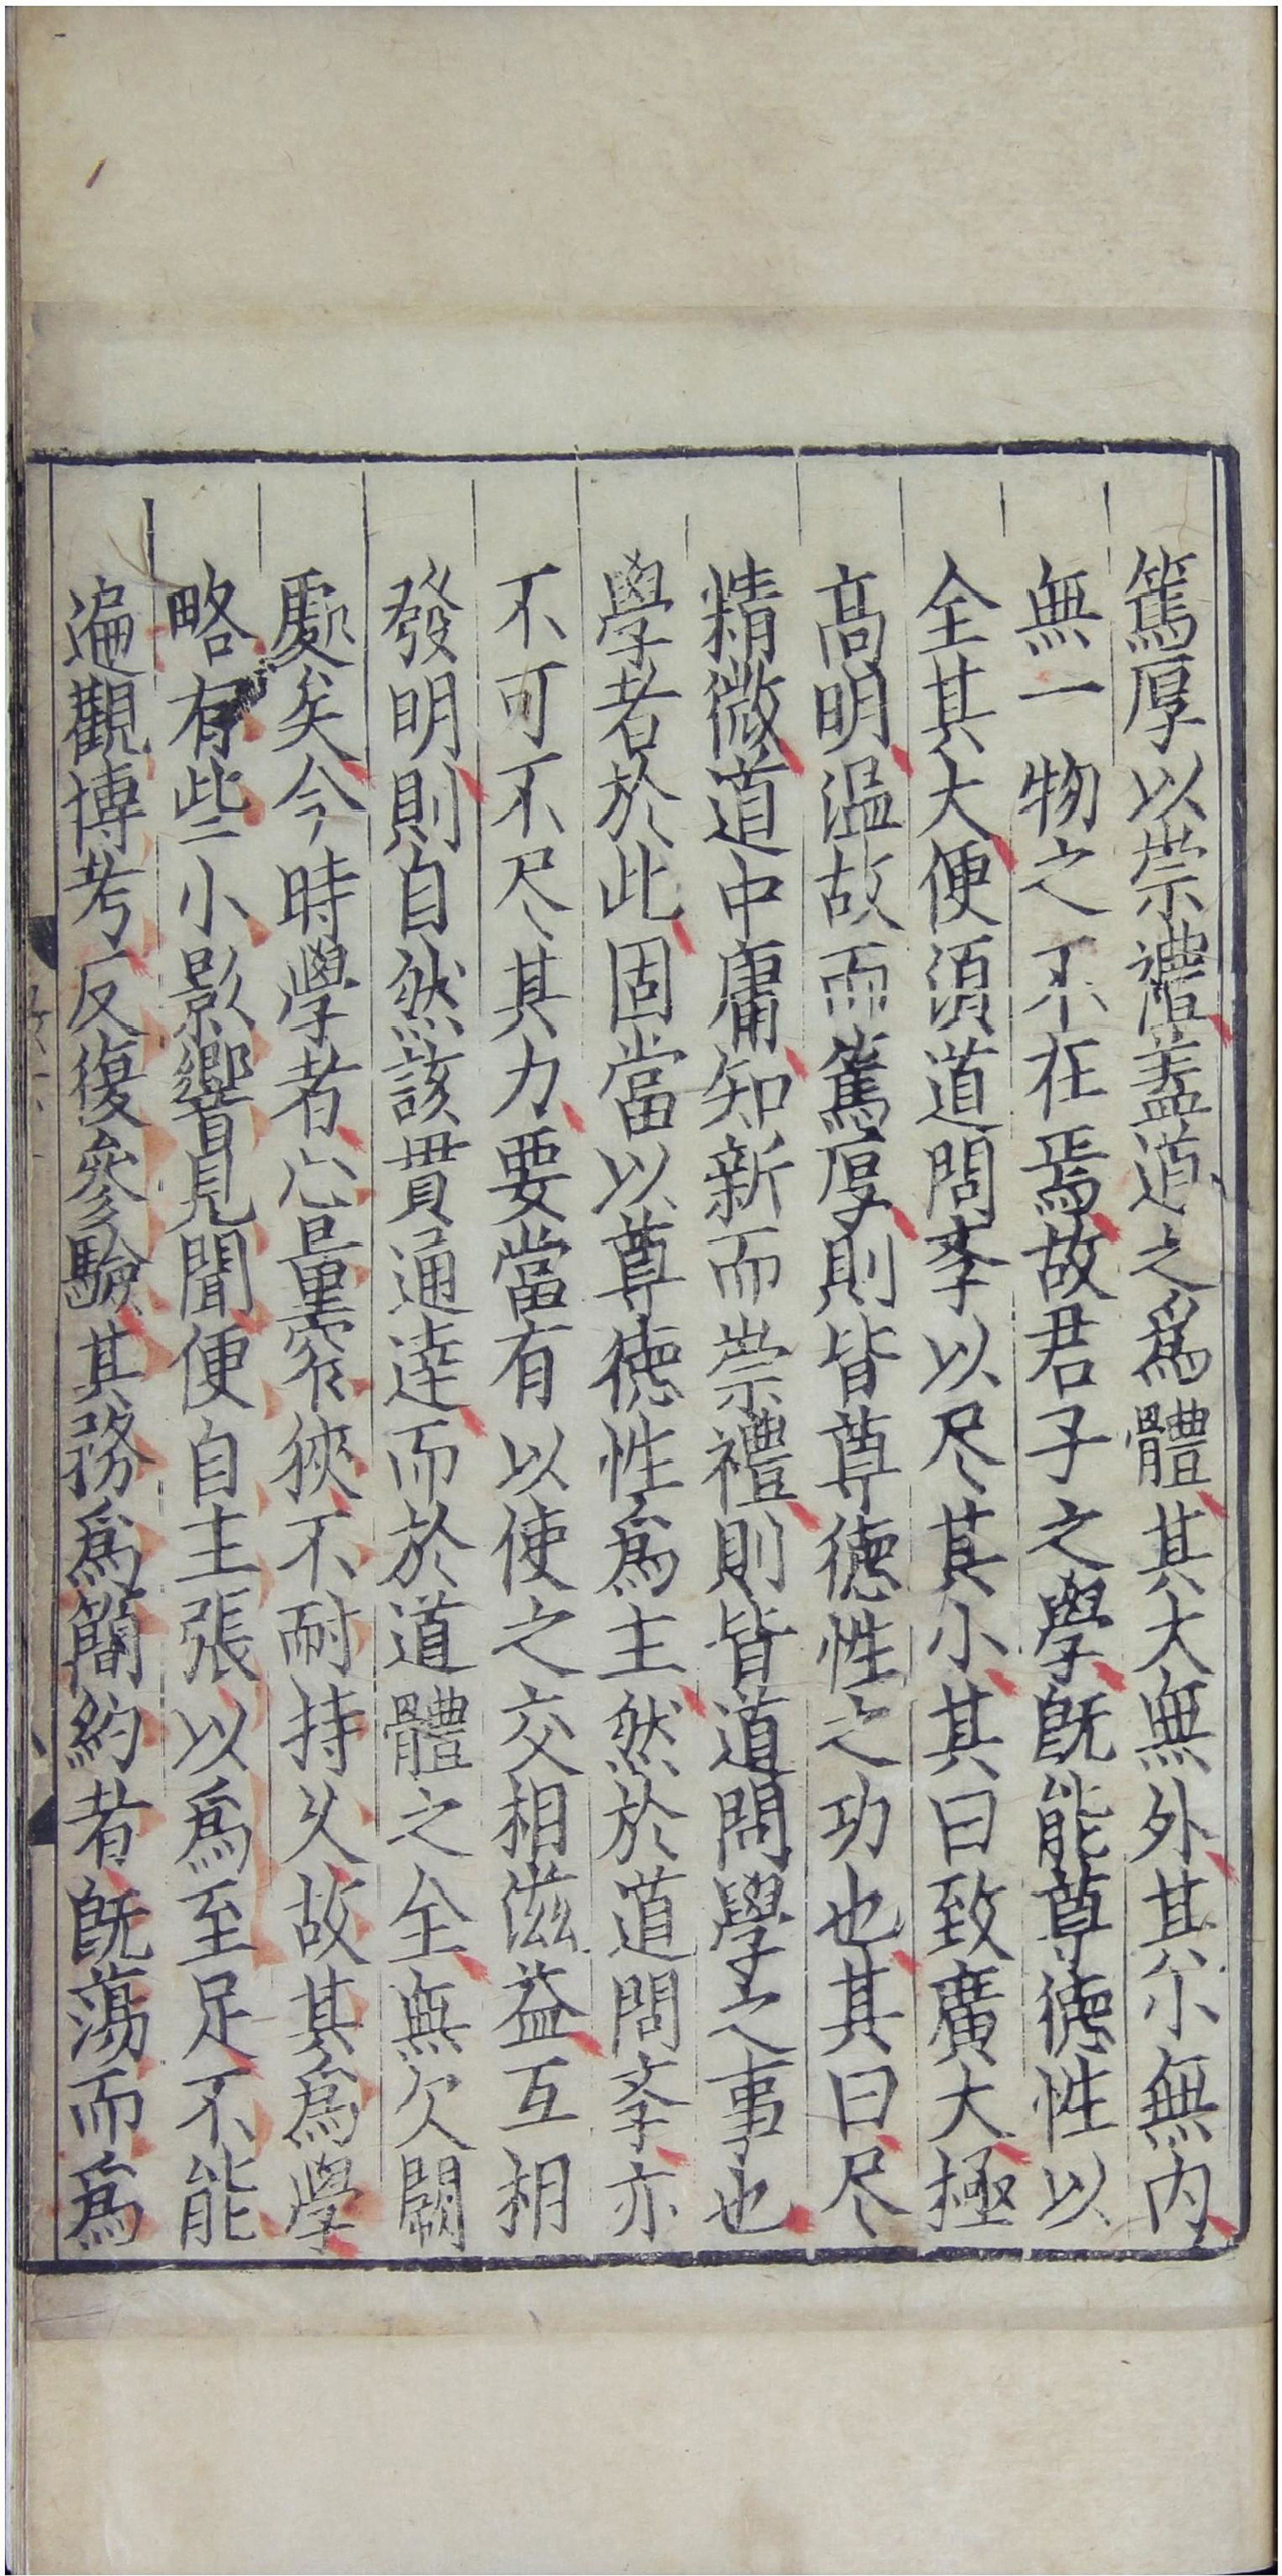 篤厚以崇禮蓋道之爲體其大無外其小無内
無一物之不在焉故君子之學旣能尊德性以
全其大便須道問斈以尽其小其曰致廣大極
高明溫故而篤厚則皆尊德性之功也其曰尽
精微道中庸知新而崇禮則皆道問學之事也
學者於此固當以尊德性爲主然於道問斈亦
不可不尽其力要當有以使之交相滋益互相
發明則自然該貫通達而於道體之全無欠闕
處矣今時學者心量窄狹不耐持久故其爲學
略有些小影響見聞便自主張以爲至足不能
遍觀博考反復參驗其務爲簡約者旣蕩而爲